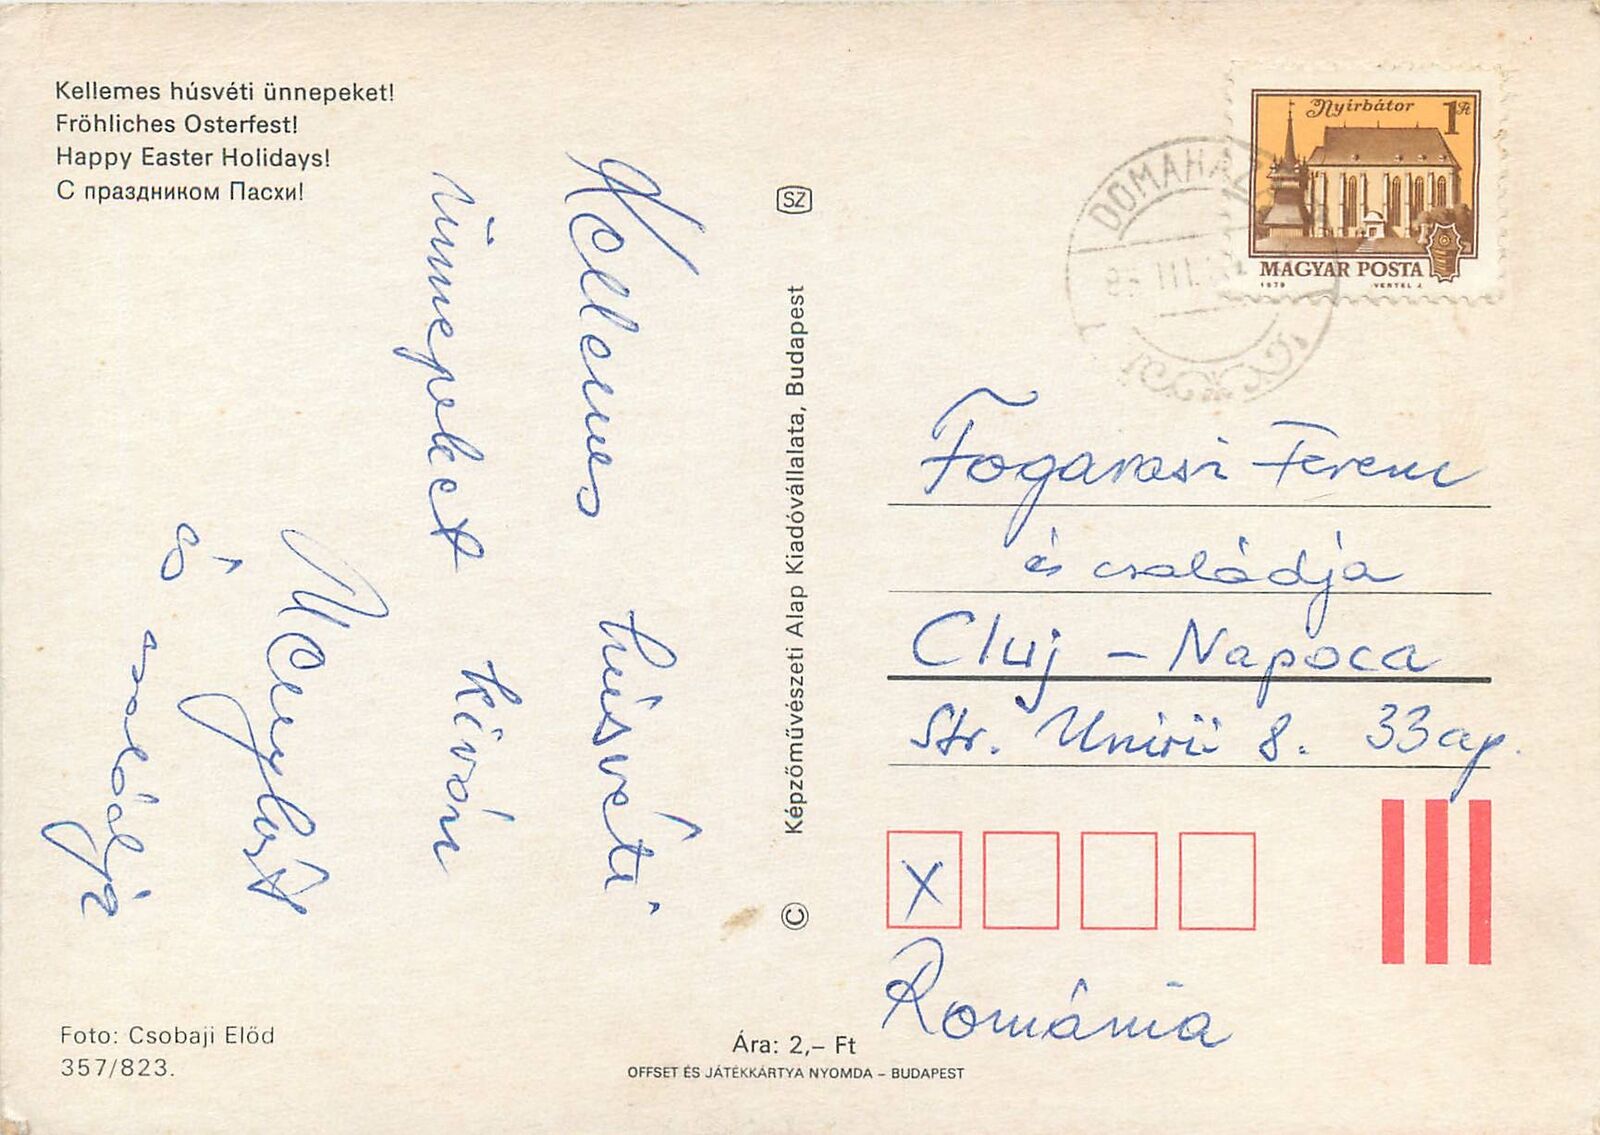 Kellemes húsvéti ünnepeket!
Fröhliches Osterfest!
Happy Easter Holidays!
С праздником Пасхи!
Kellemes húsvéti
ünnepeket kíván
és családja
SZ
Képzőművészeti Alap Kiadóvállalata, Budapest
©
Nyírbátor
1 Ft
MAGYAR POSTA
1979
VERTEL J.
DOMAHÁZA
Fogarasi Ferenc
és családja
Cluj – Napoca
Str. Unirii 8. 33 ap.
X
Románia
Foto: Csobaji Előd
357/823.
Ára: 2,– Ft
OFFSET ÉS JÁTÉKKÁRTYA NYOMDA – BUDAPEST